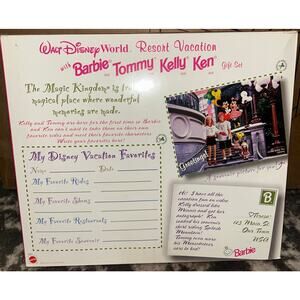 Walt Disney World Resort Vacation
with Barbie Tommy Kelly Ken Gift Set
The Magic Kingdom is truly a
magical place where wonderful
memories are made.
Kelly and Tommy are here for the first time so Barbie
and Ken can't wait to take them on their own
favorite rides and meet their favorite characters!
Write your favorites here!
Greetings!
A souvenir picture for you
My Disney Vacation Favorites
Name Date
My Favorite Rides
My Favorite Shows
My Favorite Restaurants
My Favorite Souvenir
Hi! I have all the
vacation fun on video.
Kelly dressed like
Minnie and got her
autograph! Ken
soaked his souvenir
shirt riding Splash
Mountain!
Tommy even wore
his Mousketeer
ears to bed!
Barbie
B
Teresa
Main St.
Our Town
USA